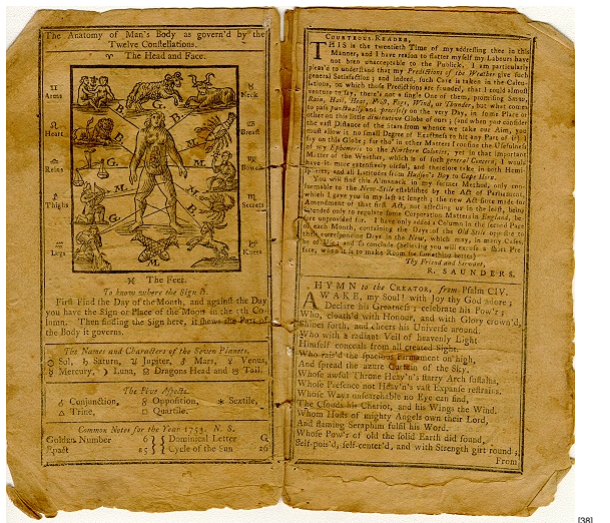 The Anatomy of Man's Body as govern'd by the
Twelve Constellations.
♈ The Head and Face.
♊
Arms
♉
Neck
♌
Heart
♋
Breast
♎
Reins
♍
Bowels
♐
Thighs
♏
Secrets
♒
Legs
♑
Knees
♓ The Feet.
To know where the Sign is.
First Find the Day of the Month, and against the Day
you have the Sign or Place of the Moon in the 5th Co-
lumn. Then finding the Sign here, it shews the Part of
the Body it governs.
The Names and Characters of the Seven Planets.
☉ Sol, ♄ Saturn, ♃ Jupiter, ♂ Mars, ♀ Venus,
☿ Mercury, ☽ Luna, ☊ Dragons Head and ☋ Tail.
The Five Aspects.
☌ Conjunction, ☍ Opposition, ⚹ Sextile,
△ Trine, □ Quartile.
Common Notes for the Year 1753. N. S.
Golden Number 6 Dominical Letter G
Epact 25 Cycle of the Sun 26
COURTEOUS READER,
THIS is the twentieth Time of my addressing thee in this
Manner, and I have reason to flatter myself my Labours have
not been unacceptable to the Publick. I am particularly
pleas'd to understand that my Predictions of the Weather give such
general Satisfaction; and indeed, such Care is taken in the Calcu-
lations, on which those Predictions are founded, that I could almost
venture to say, there's not a single One of them, promising Snow,
Rain, Hail, Heat, Frost, Fogs, Wind, or Thunder, but what comes
to pass punctually and precisely on the very Day, in some Place or
other on this little diminutive Globe of ours; (and when you consider
the vast Distance of the Stars from whence we take our Aim, you
must allow it no small Degree of Exactness to hit any Part of it) I
say on this Globe; for tho' in other Matters I confine the Usefulness
of my Ephemeris to the Northern Colonies, yet in that important
Matter of the Weather, which is of such general Concern, I would
have it more extensively useful, and therefore take in both Hemi-
spheres, and all Latitudes from Hudson's Bay to Cape Horn.
You will find this Almanack in my former Method, only con-
formable to the New-Stile established by the Act of Parliament,
which I gave you in my last at length; the new Act since made for
Amendment of that first Act, not affecting us in the least, being
intended only to regulate some Corporation Matters in England,
before unprovided for. I have only added a Column in the second Page
of each Month, containing the Days of the Old Stile opposite to
their corresponding Days in the New, which may, in many Cases,
be of Use; and so conclude (believing you will excuse a short Pre-
face, when it is to make Room for something better)
Thy Friend and Servant,
R. SAUNDERS.
HYMN to the CREATOR, from Psalm CIV.
AWAKE, my Soul! with Joy thy God adore;
Declare his Greatness; celebrate his Pow'r;
Who, cloath'd with Honour, and with Glory crown'd,
Shines forth, and cheers his Universe around,
Who with a radiant Veil of heavenly Light
Himself conceals from all created Sight.
Who rais'd the spacious Firmament on high,
And spread the azure Curtain of the Sky.
Whose awful Throne Heav'n's starry Arch sustains,
Whose Presence not Heav'n's vast Expanse restrains.
Whose Ways unsearchable no Eye can find,
The Clouds his Chariot, and his Wings the Wind.
Whom Hosts of mighty Angels own their Lord,
And flaming Seraphim fulfil his Word.
Whose Pow'r of old the solid Earth did found,
Self-pois'd, self-center'd, and with Strength girt round;
From
[38]